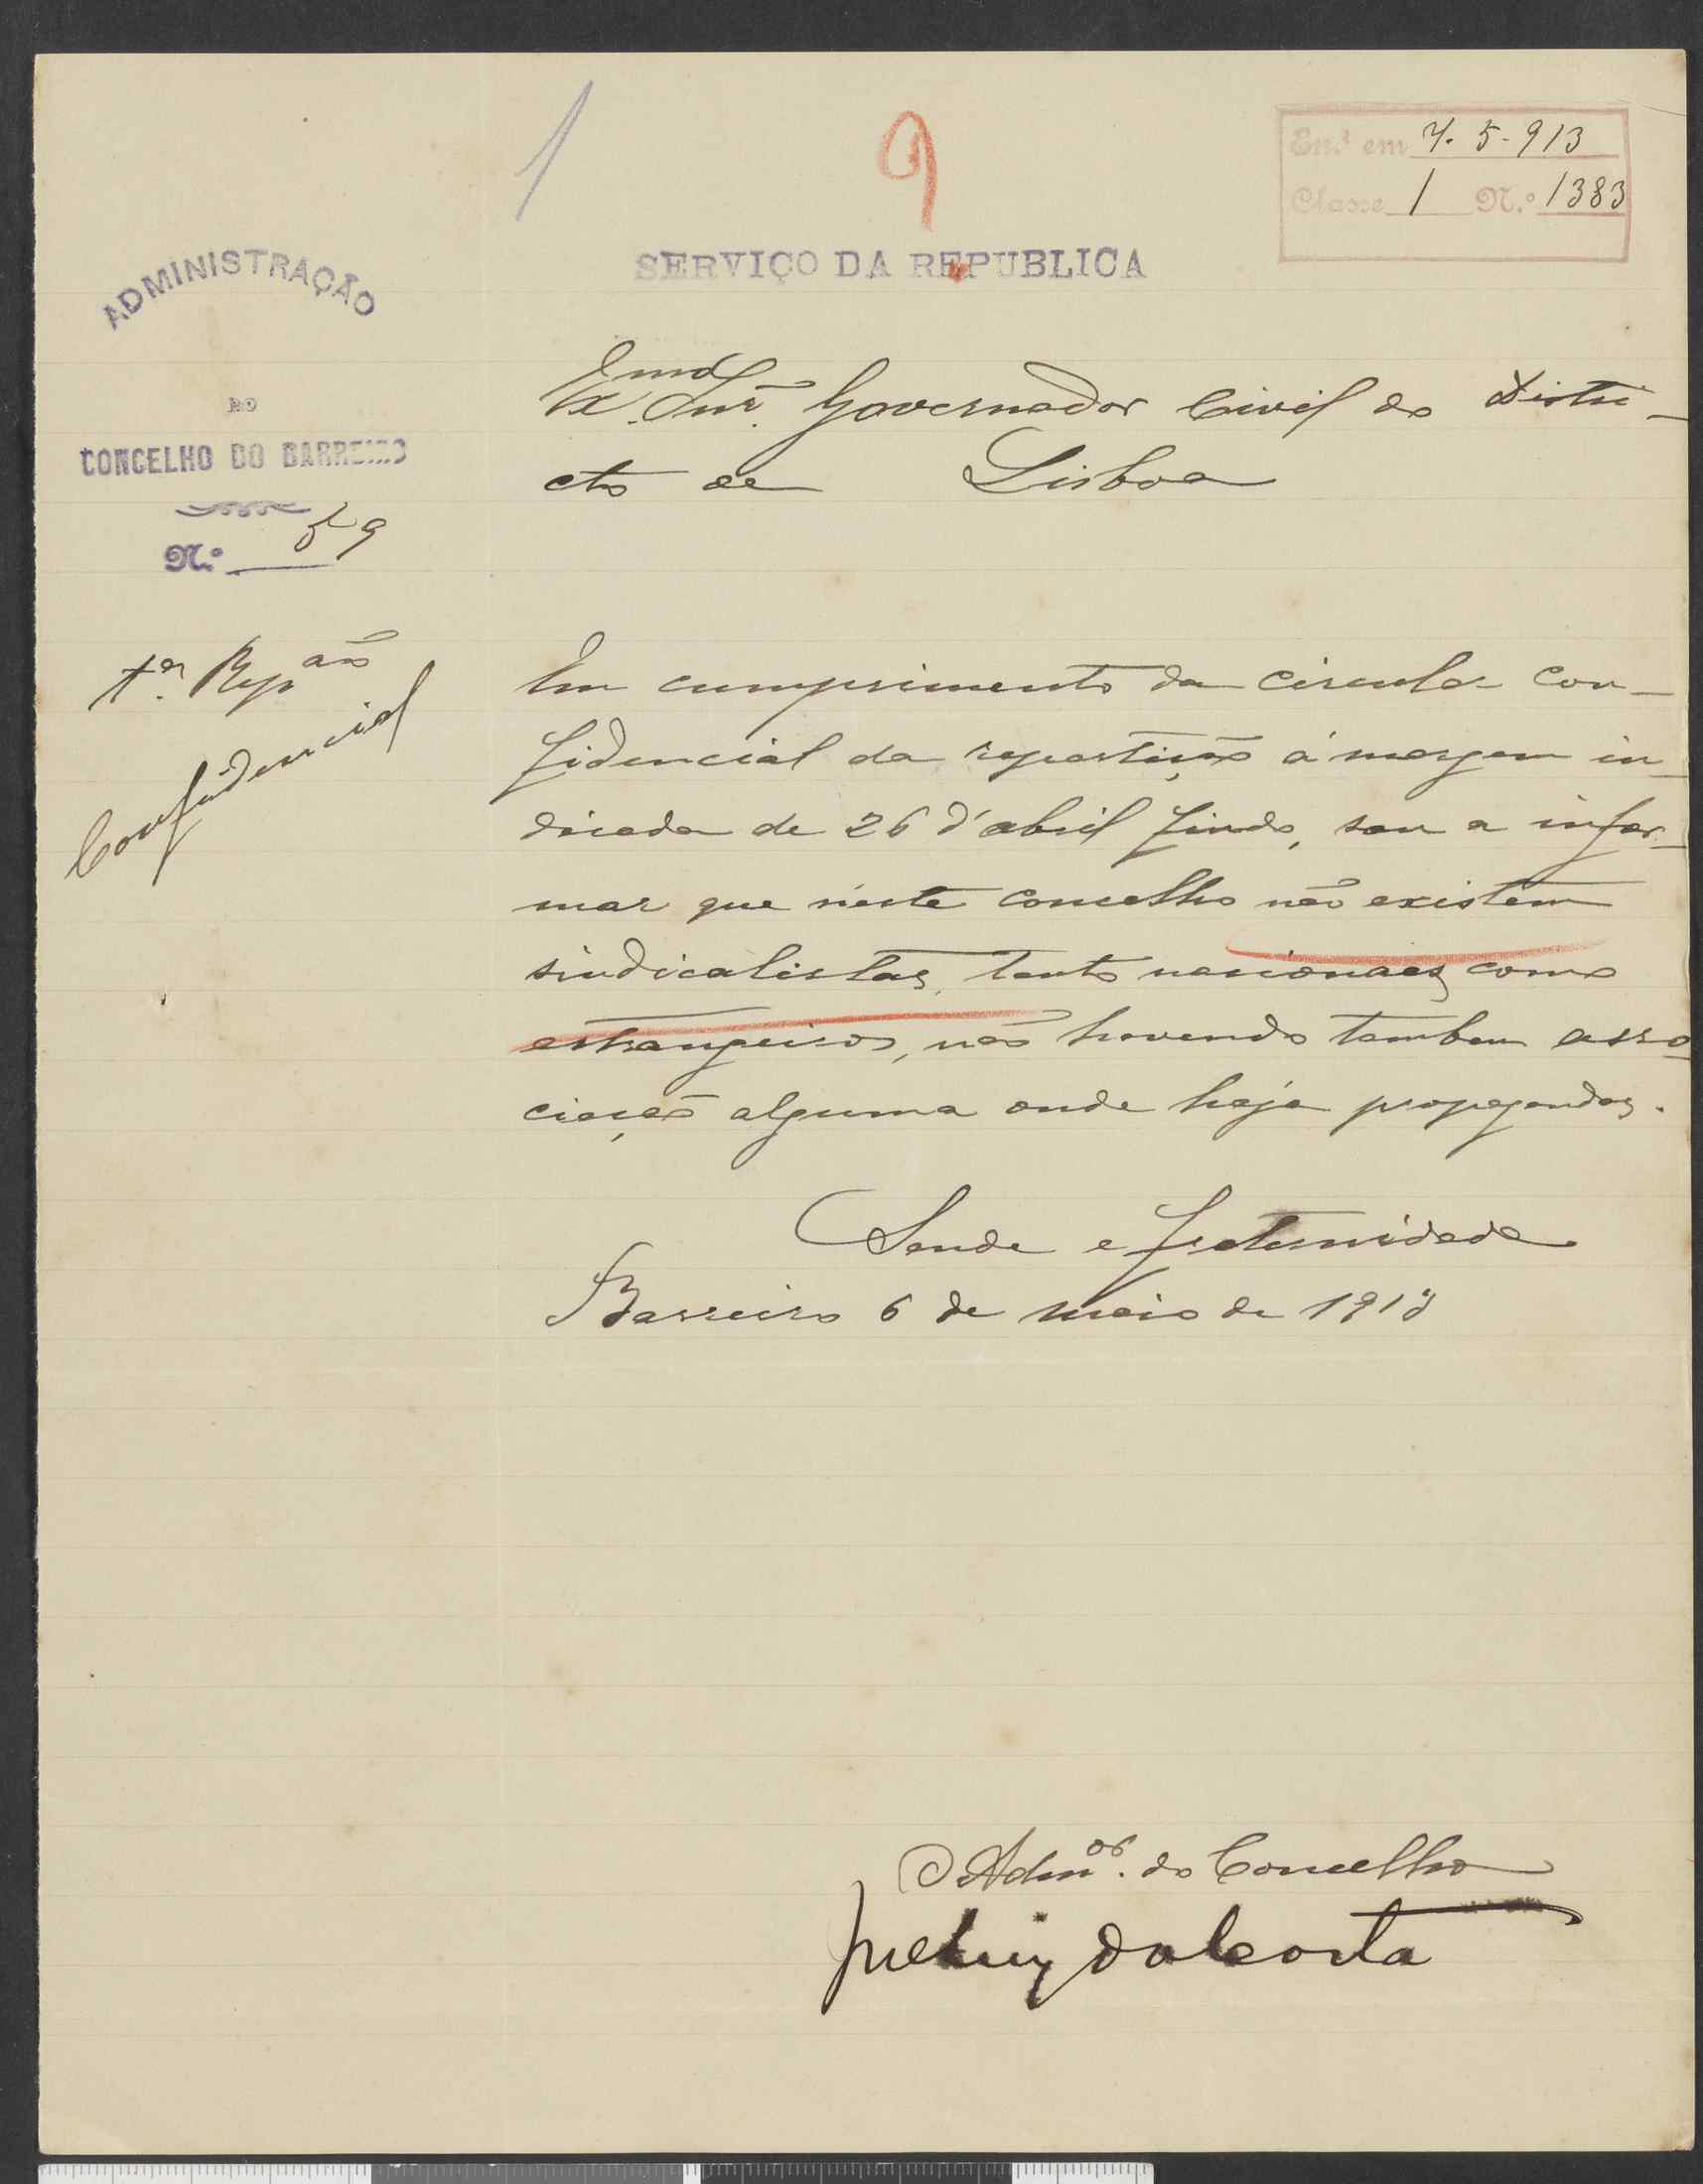 1
9
Entº em 7. 5. 913
Classe 1 N.º 1383
SERVIÇO DA REPUBLICA
ADMINISTRAÇÃO
DO
CONCELHO DO BARREIRO
N.º 59
1.ª Repão
Confidencial
Exmo. Snr. Governador Civil do Distri-
cto de Lisboa
Em cumprimento da circular con-
fidencial da repartição á margem in-
dicada de 26 d'abril findo, sou a infor-
mar que n'este concelho não existem
sindicalistas, tanto nacionaes como
estrangeiros, não havendo tambem asso-
ciação alguma onde haja propagandas.
Saude e fraternidade
Barreiro 6 de maio de 1913
O Admor. do Concelho
da Costa